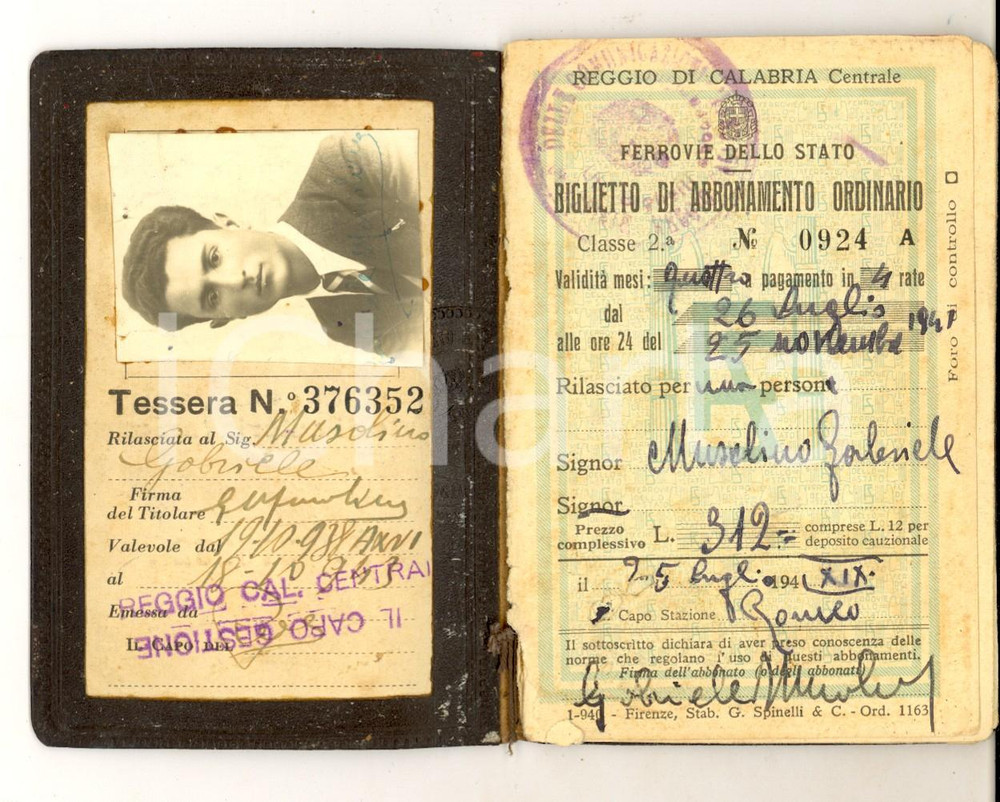 Tessera N.º 376352
Rilasciata al Sig. Musolino
Gabriele
Firma
del Titolare
Valevole dal 19-10-938 XVI
al 18-10-943
Emessa da
REGGIO CAL. CENTRAL
IL CAPO DEL
IL CAPO GESTIONE
REGGIO DI CALABRIA Centrale
FERROVIE DELLO STATO
BIGLIETTO DI ABBONAMENTO ORDINARIO
Classe 2.ª № 0924 A
Validità mesi: quattro pagamento in 4 rate
dal 26 luglio
alle ore 24 del 25 novembre 1941
Rilasciato per una persona
Signor Musolino Gabriele
Signor
Prezzo
complessivo L. 312.= comprese L. 12 per
deposito cauzionale
il 25 luglio 1941 XIX.
Capo Stazione Romeo
Il sottoscritto dichiara di aver preso conoscenza delle
norme che regolano l'uso di questi abbonamenti.
Firma dell'abbonato (o degli abbonati)
Gabriele Musolino
1-940 - Firenze, Stab. G. Spinelli & C. - Ord. 1163
Foro di controllo